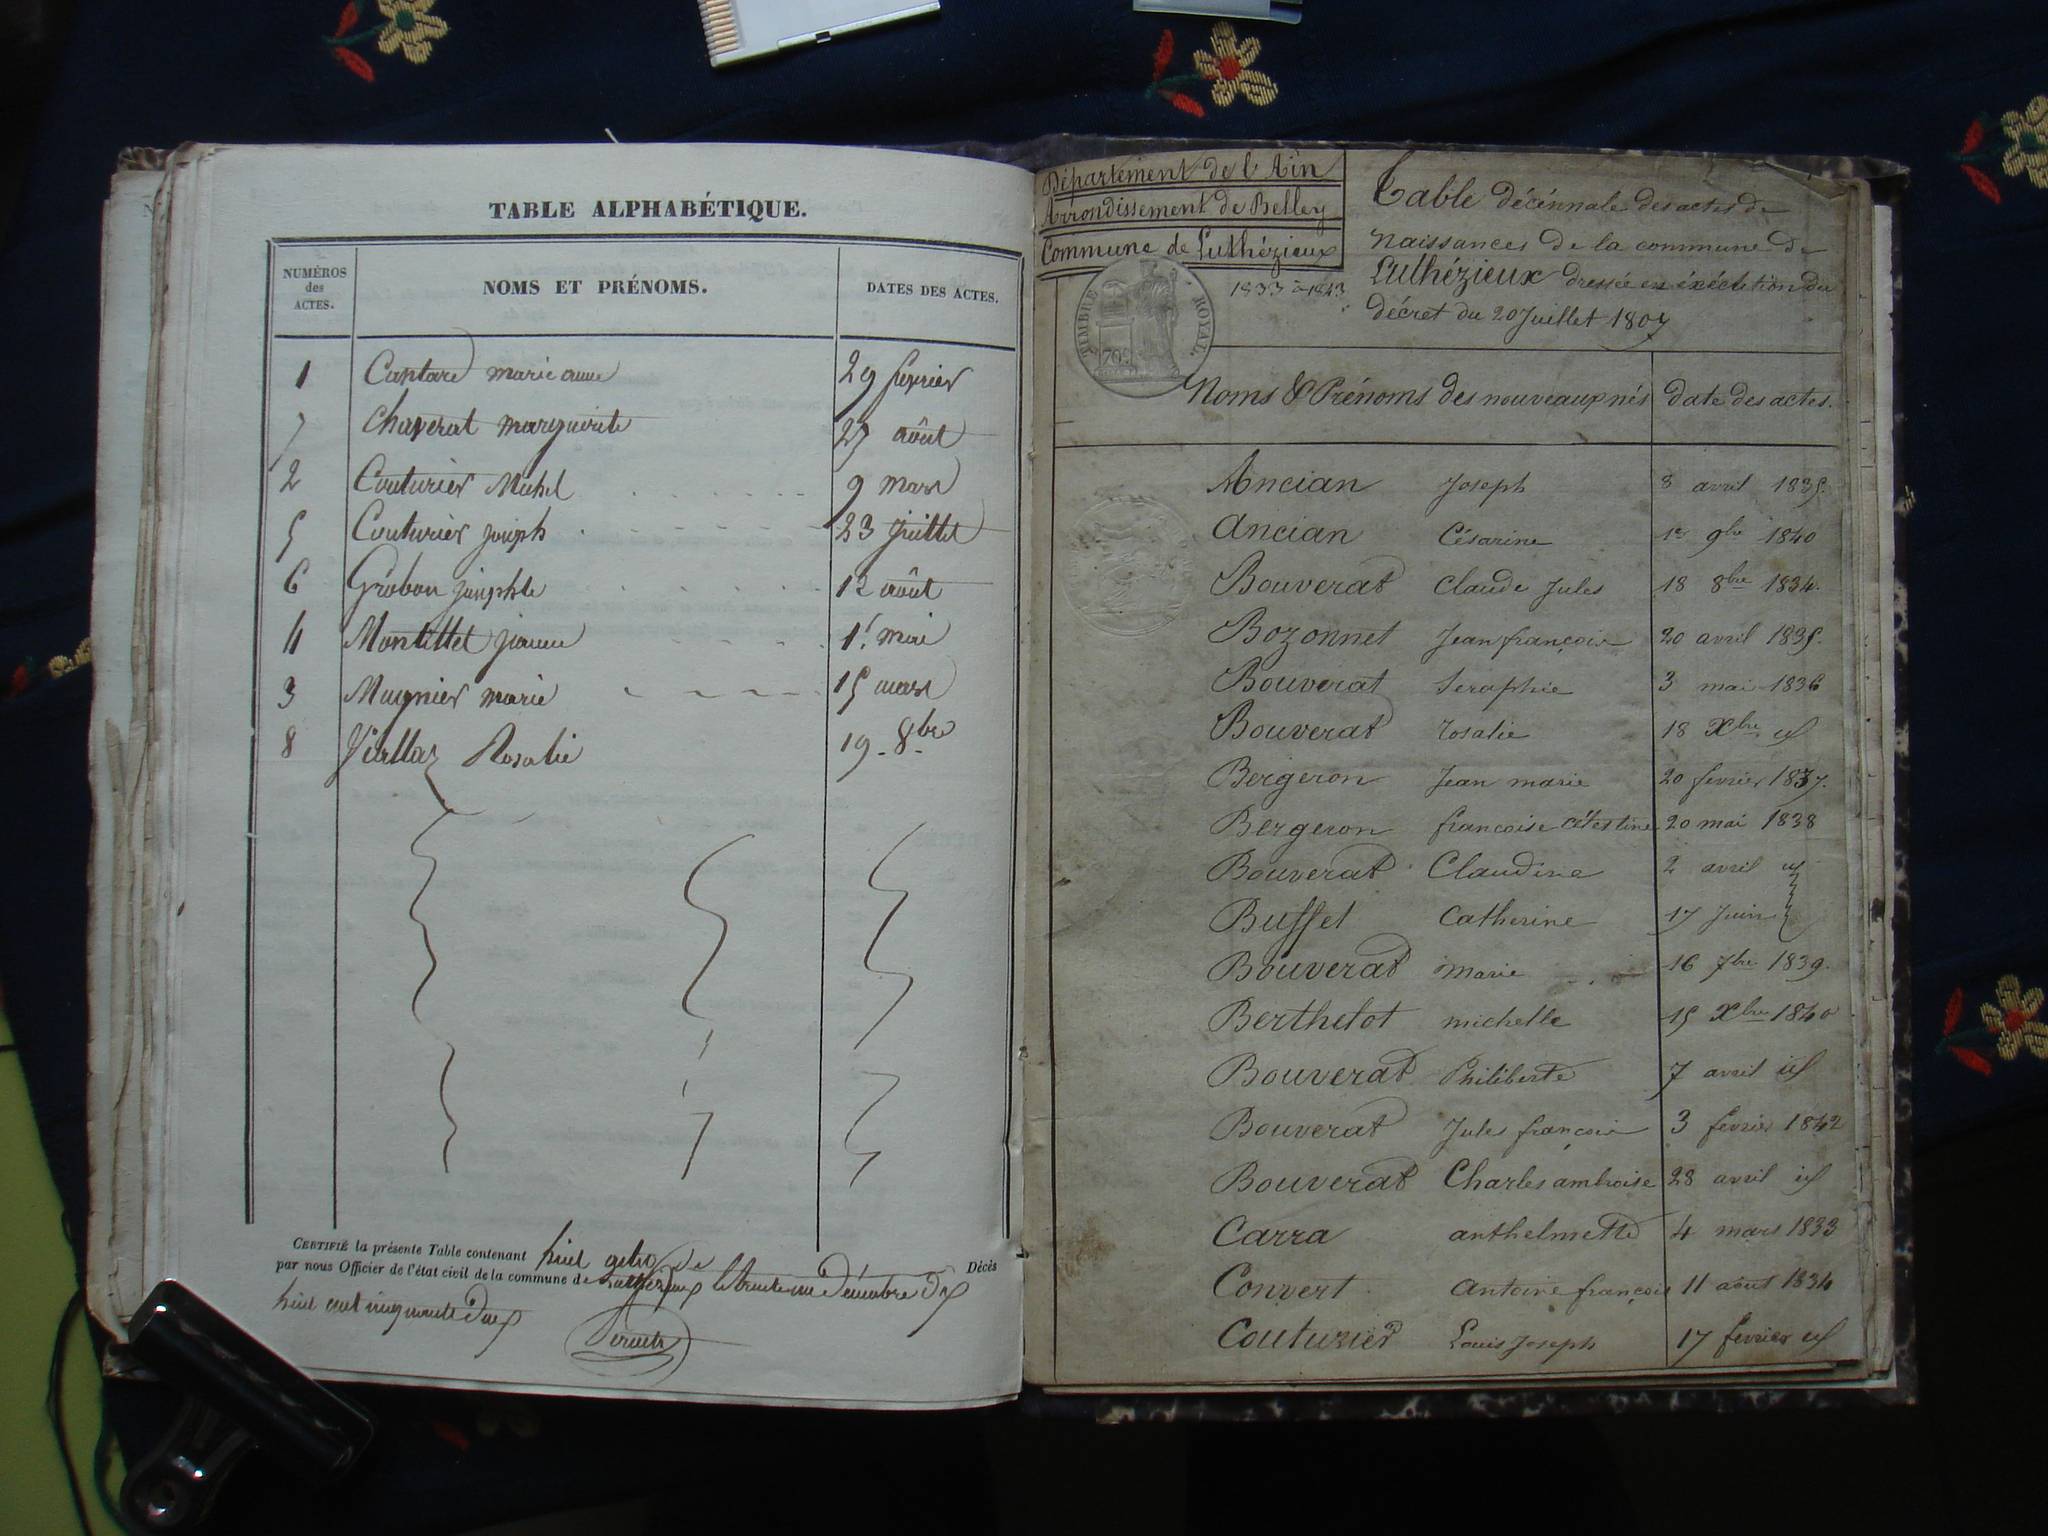 TABLE ALPHABÉTIQUE.
NUMÉROS des ACTES.
NOMS ET PRÉNOMS.
DATES DES ACTES.
1 Cantard marie anne 29 fevrier
7 Chaverat marguerite 27 août
2 Couturier Michel 9 mars
5 Couturier joseph 23 juillet
6 Grobon josephte 12 août
4 Montillet 1r. mai
3 Mugnier marie 15 mars
8 Viallaz Rosalie 19 8bre
CERTIFIÉ la présente Table contenant huit actes de Décès
par nous Officier de l'état civil de la commune de Luthézieux le trente un Décembre Dix
huit cent cinquante Deux
Département de l'Ain
Arrondissement de Belley
Commune de Luthézieux
1833 à 1843
TIMBRE ROYAL.
70c
Table décennale des actes de
Naissances de la commune de
Luthézieux dressée en éxécution du
décret du 20 Juillet 1807
Noms & Prénoms des nouveaux nés date des actes.
Ancian Joseph 8 avril 1835.
Ancian Césarine 1er 9bre 1840
Bouverat Claude Jules 18 8bre 1834.
Bozonnet Jean françois 20 avril 1835.
Bouverat Seraphie 3 mai 1836
Bouverat rosalie 18 Xbre id
Bergeron Jean marie 20 fevrier 1837.
Bergeron francoise célestine 20 mai 1838
Bouverat Claudine 2 avril id
Buffet Catherine 17 Juin
Bouverat marie 16 7bre 1839.
Berthelot michelle 15 Xbre 1840
Bouverat Philiberte 7 avril id
Bouverat Jules françois 3 fevrier 1842
Bouverat Charles ambroise 28 avril id
Carra anthelmette 4 mars 1833
Convert Antoine françois 11 août 1834
Couturier Louis Joseph 17 fevrier id